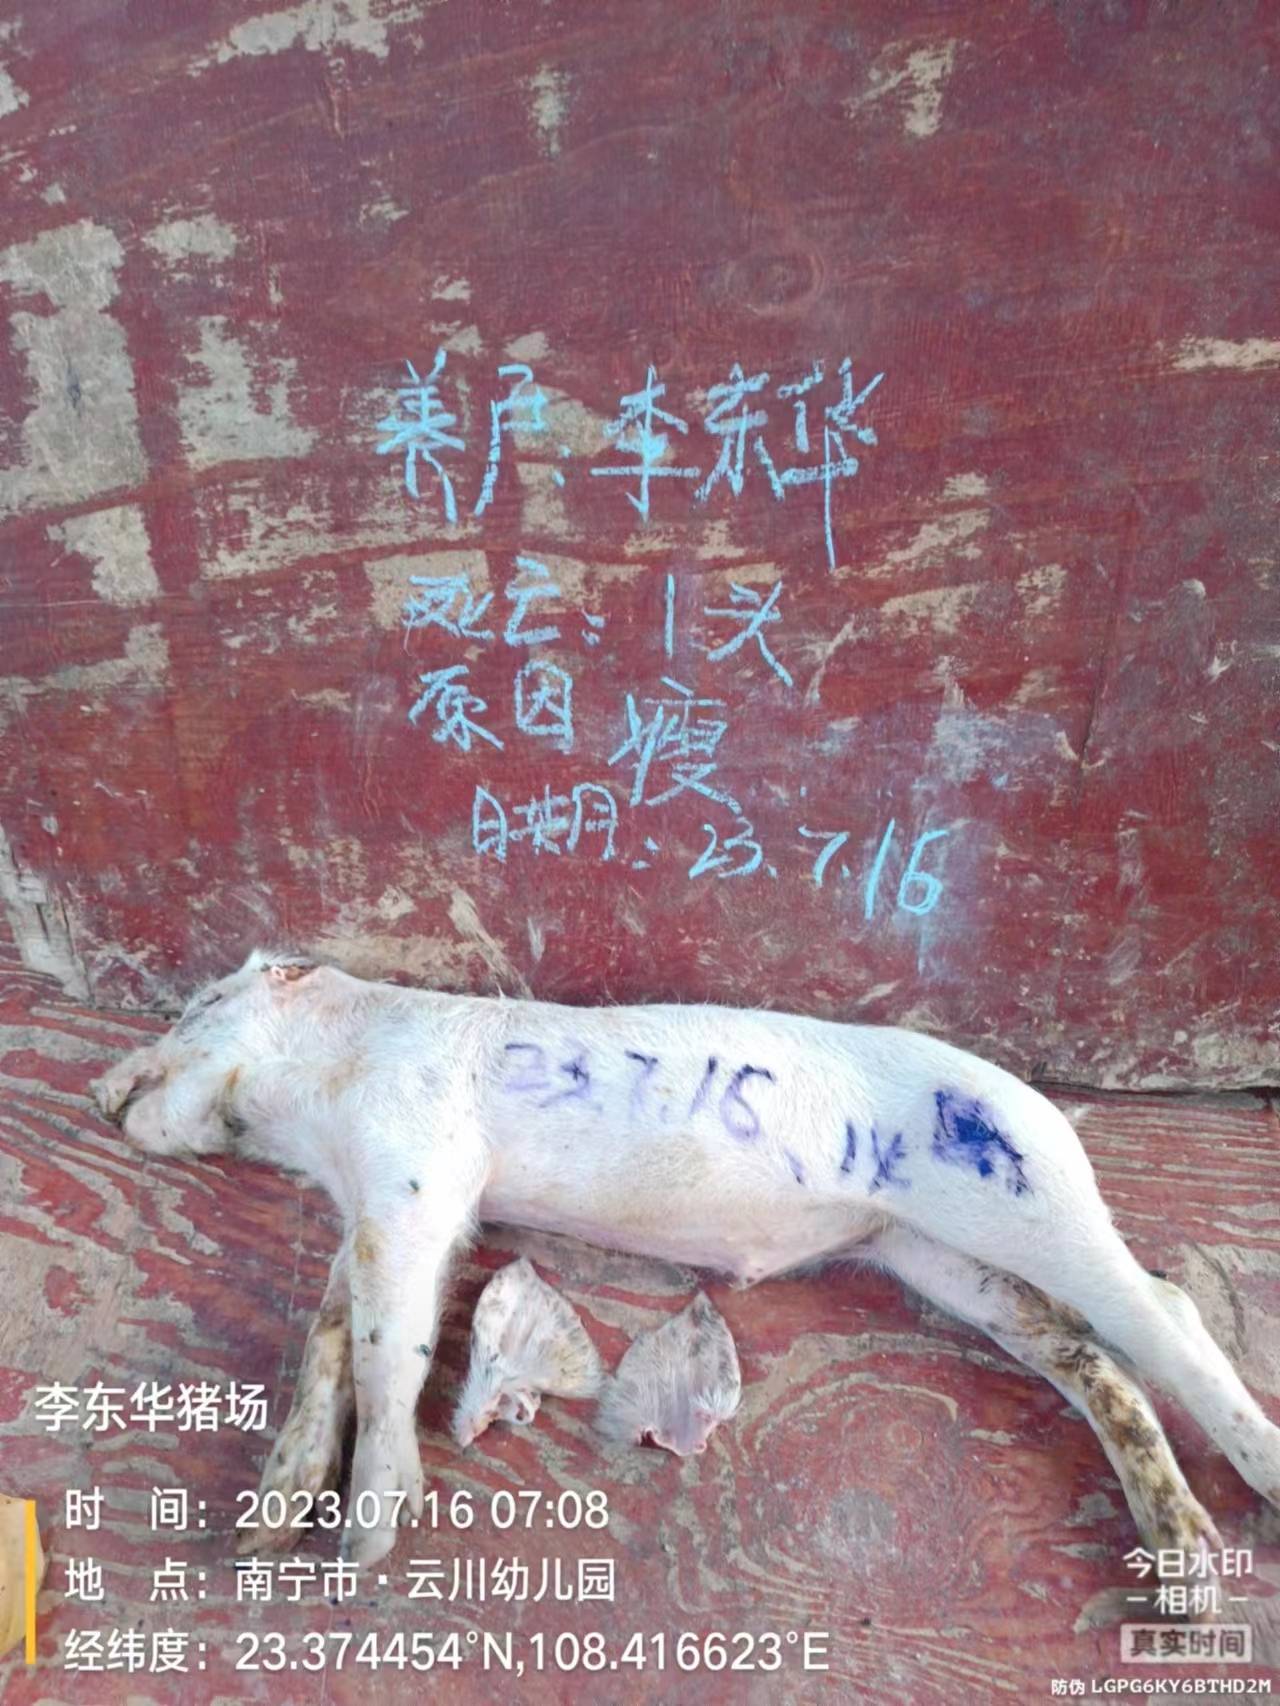 养户：李东华
死亡：1头
原因 瘦
日期：23.7.16
23.7.16、1头
李东华猪场
时 间：2023.07.16 07:08
地 点：南宁市·云川幼儿园
经纬度：23.374454°N,108.416623°E
今日水印
－相机－
真实时间
防伪 LGPG6KY6BTHD2M